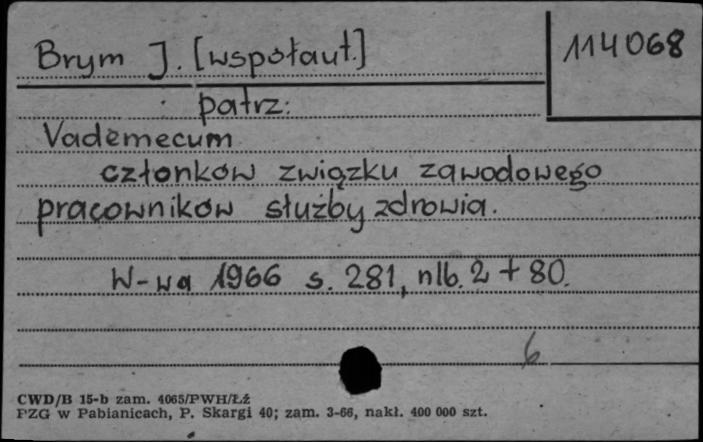 Brym J. [współaut.]
114068
patrz:
Vademecum
członków związku zawodowego
pracowników służby zdrowia.
W-wa 1966 s. 281, nlb. 2 + 80.
6
CWD/B 15-b zam. 4065/PWH/Łź
PZG w Pabianicach, P. Skargi 40; zam. 3-66, nakł. 400 000 szt.